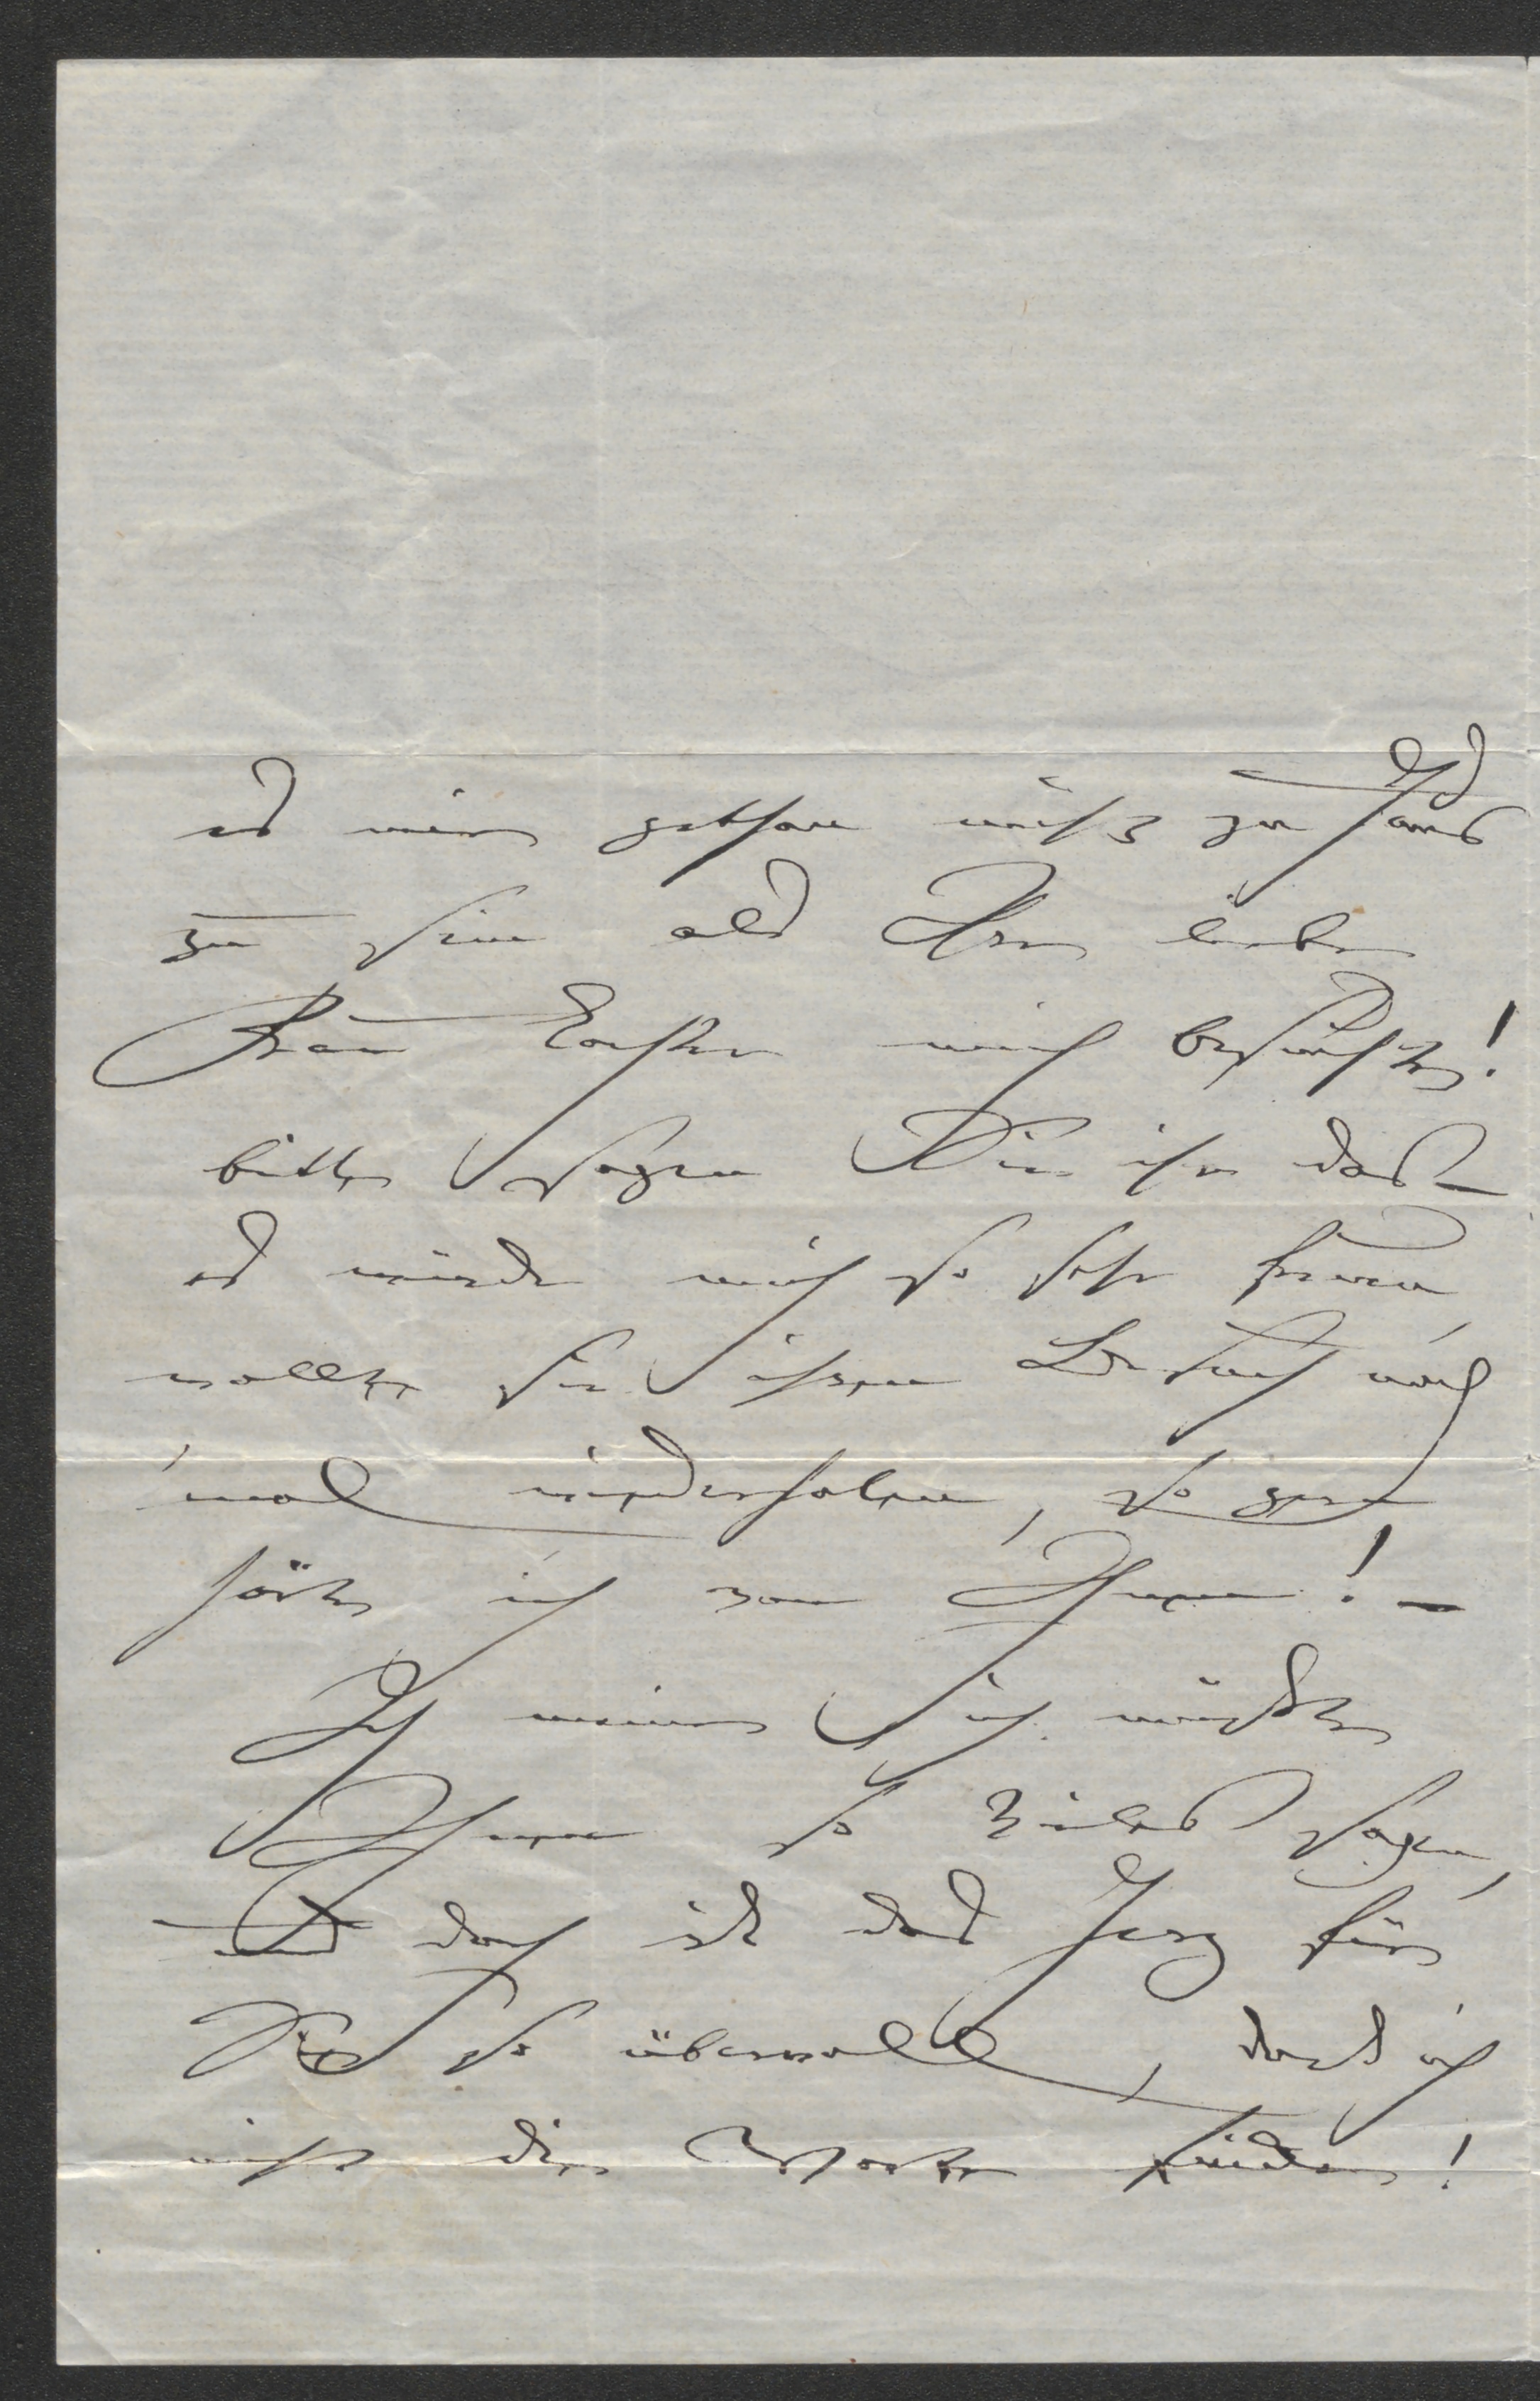 es mir gethan nicht zu Haus
zu sein als Ihre liebe
Frau Tochter mich besuchte!
bitte sagen Sie ihr das –
es würde mich so sehr freuen
wollte sie ihren Besuch noch
'mal wiederholen, so gern
hörte ich von Ihnen! –
Ich meine ich müßte
Ihnen so Vieles sagen,
und doch ist das Herz für
Sie so übervoll, daß ich
nicht die Worte finde!